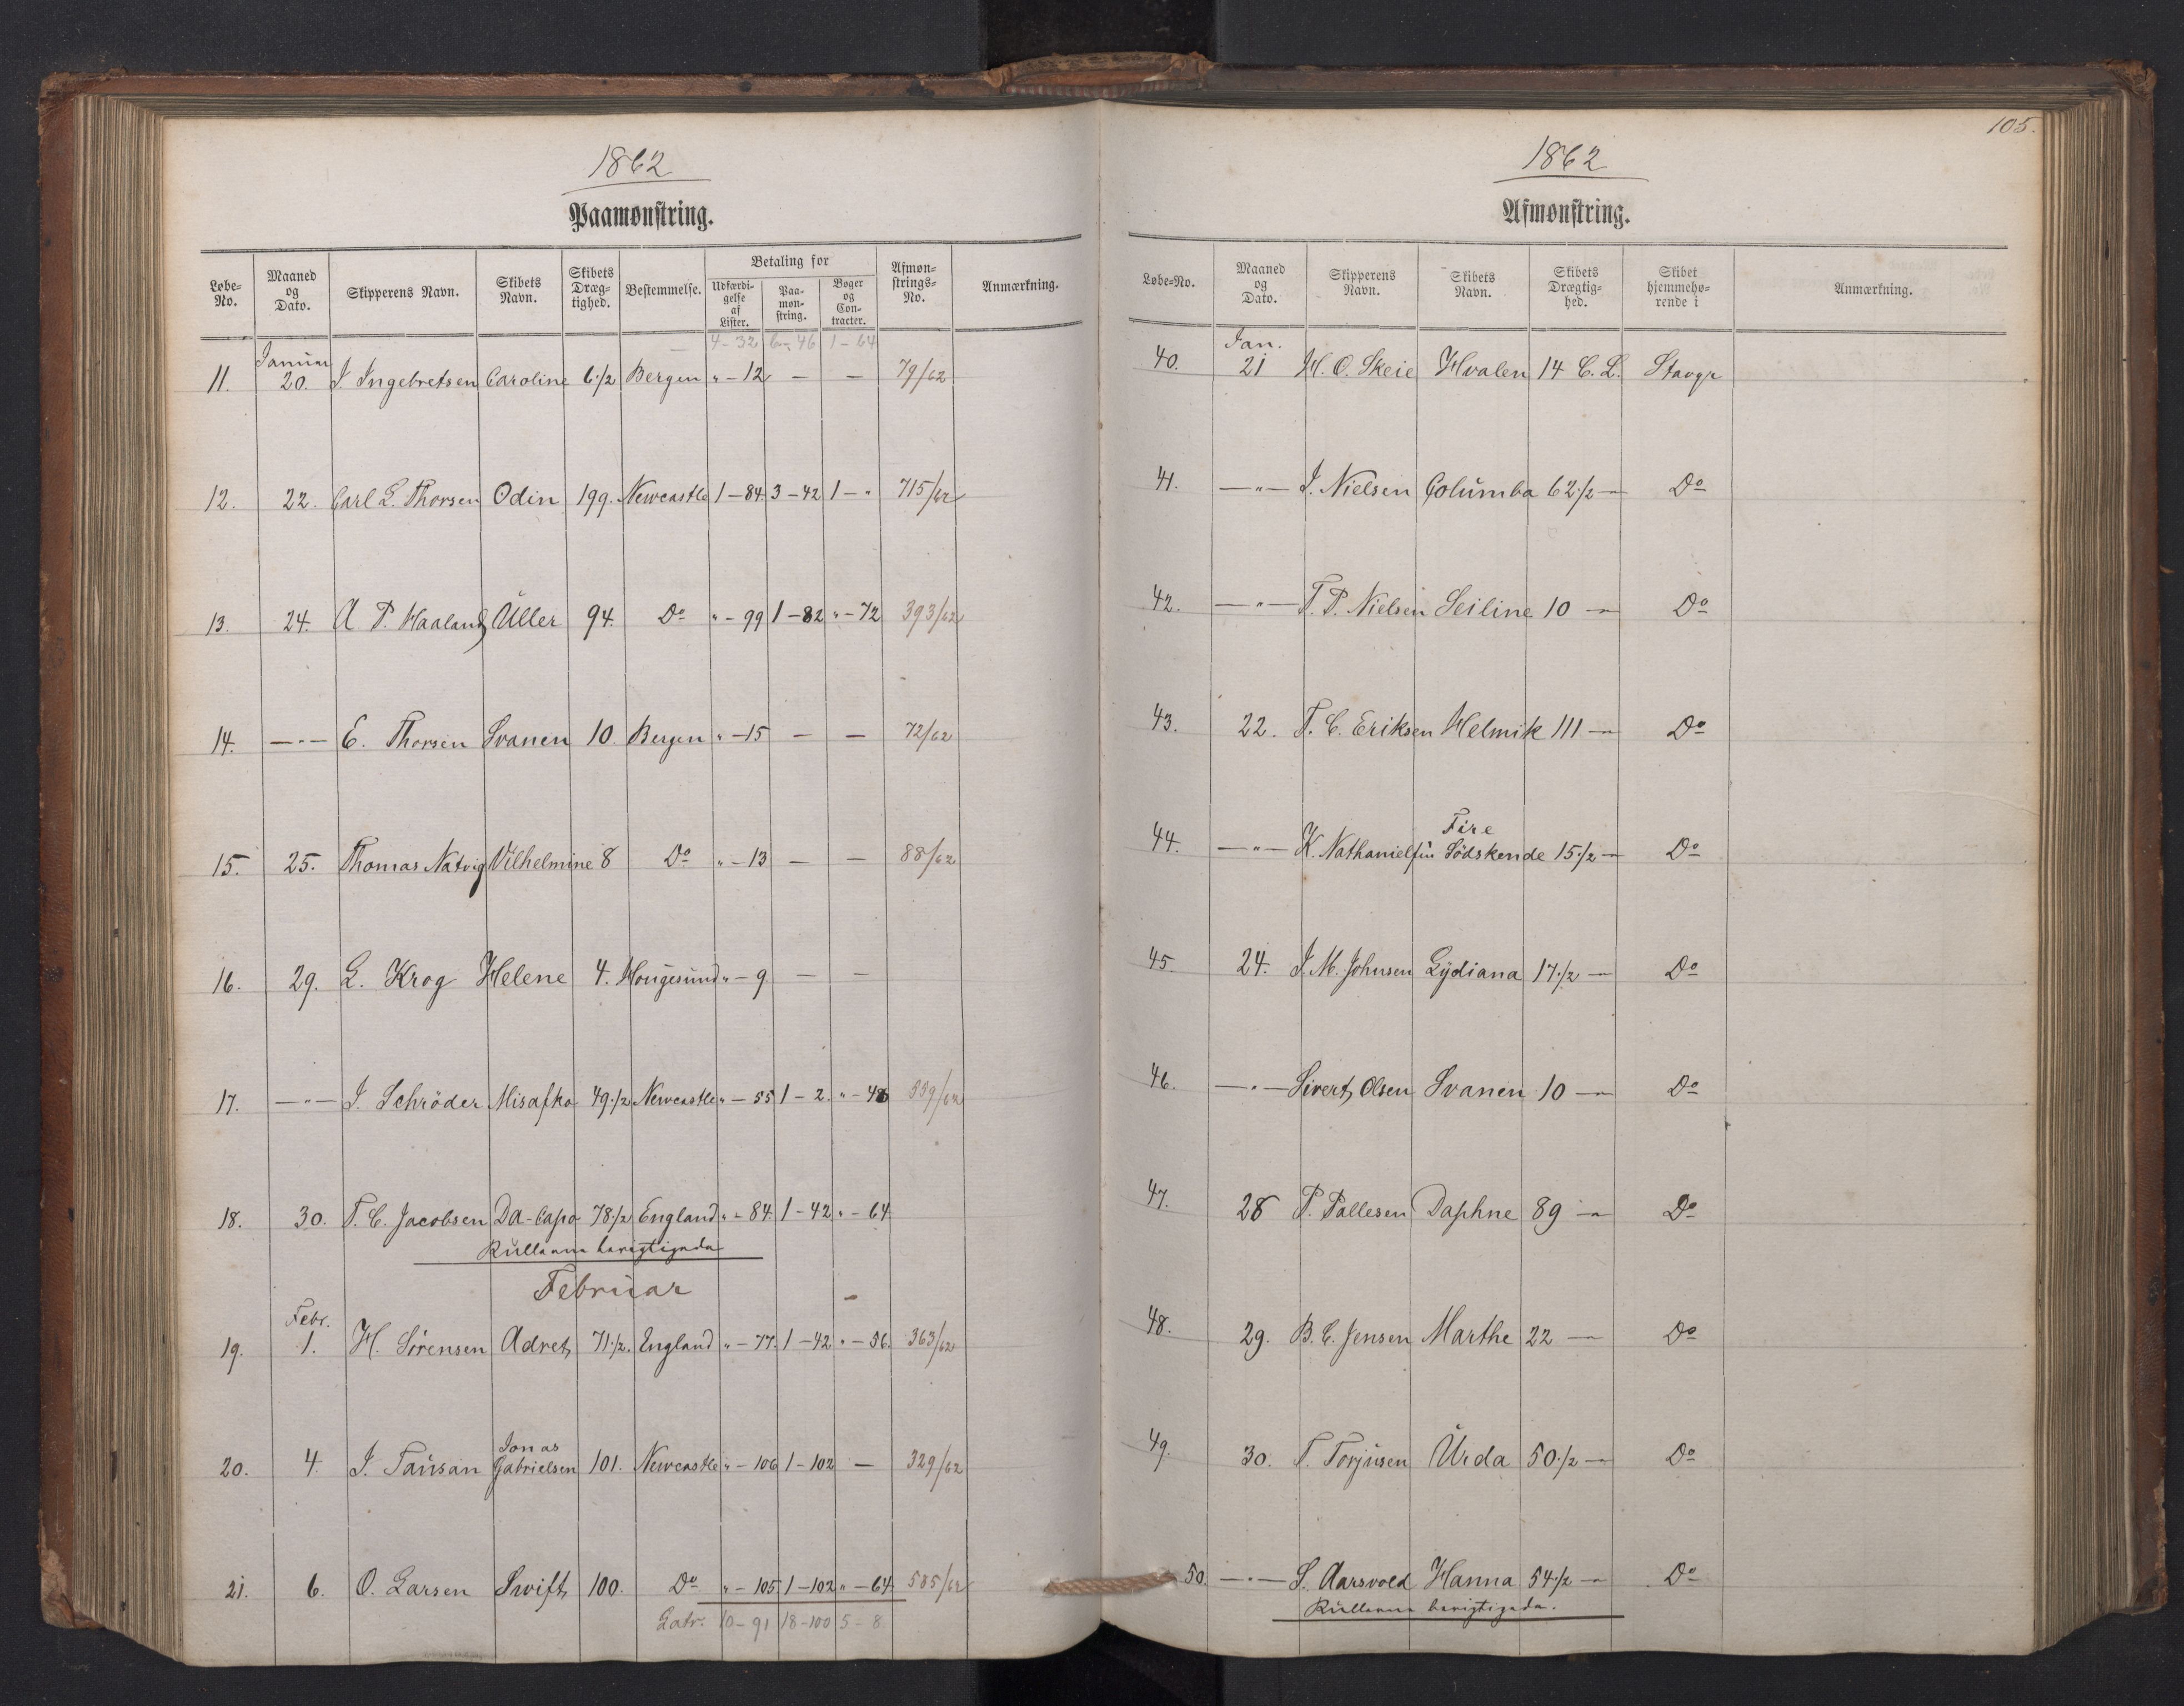 1862
Paamønstring.
Løbe-No. Maaned og Dato. Skipperens Navn. Skibets Navn. Skibets Drægtighed. Bestemmelse. Betaling for Udfærdigelse af Lister. Paamønstring. Bøger og Contracter. Afmønstrings-No. Anmærkning.
4-32 1-64
11. Januar 20. J Ingebretsen Caroline 6 1/2 Bergen " - 12 — — 79/62
12. 22. Carl L. Thorsen Odin 199. Newcastle 1 - 84. 3 - 42 1 - " 715/62
13. 24. A P. Haaland Üller 94. Do " - 99 1 - 82 " - 72 393/62
14. —"— E. Thorsen Svanen 10. Bergen " - 15 — — 72/62
15. 25. Thomas Natvig Vilhelmine 8 Do " - 13 — — 88/62
16. 29. L. Krog Helene 4. Hougesund " - 9 — —
17. —"— J. Schröder Misafko 49 1/2 Newcastle " - 55 1 - 2. " - 48 559/62
18. 30. T. C. Jacobsen Da-Capo 78 1/2 England " - 84. 1 - 42 " - 64
Rullerne berigtigede
Februar
19. Febr. 1. H. Sörensen Adret 71 1/2. England " - 77. 1 - 42 " - 56. 363/62
20. 4. J. Tausan Jonas Gabrielsen 101. Newcastle " - 106 1 - 102 — 329/62
21. 6. O. Larsen Swift 100. Do " - 105 1 - 102 " - 64 585/62
Latr. 10 - 91 18 - 100 5 - 8
105.
1862
Afmønstring.
Løbe-No. Maaned og Dato. Skipperens Navn. Skibets Navn. Skibets Drægtighed. Skibet hjemmehørende i Anmærkning.
40. Jan. 21 H. O. Skeie Hvalen 14 C. L. Stavgr
41. —"— J. Nielsen Columba 62 1/2 — Do
42. —"— T. P. Nielsen Seiline 10 — Do
43. 22. T. C. Eriksen Helmik 111 — Do
44. —"— K. Nathanielsen Fire Södskende 15 1/2 — Do
45. 24. J. M. Johnsen Lydiana 17 1/2 — Do
46. —"— Sivert Olsen Svanen 10 — Do
47. 28 P. Pallesen Daphne 89 — Do
48. 29. B. C. Jensen Marthe 22 — Do
49. 30. T. Torjusen Urda 50 1/2 — Do
50. —"— S. Aarsvold Hanna 54 1/2 — Do
Rullerne berigtigede.